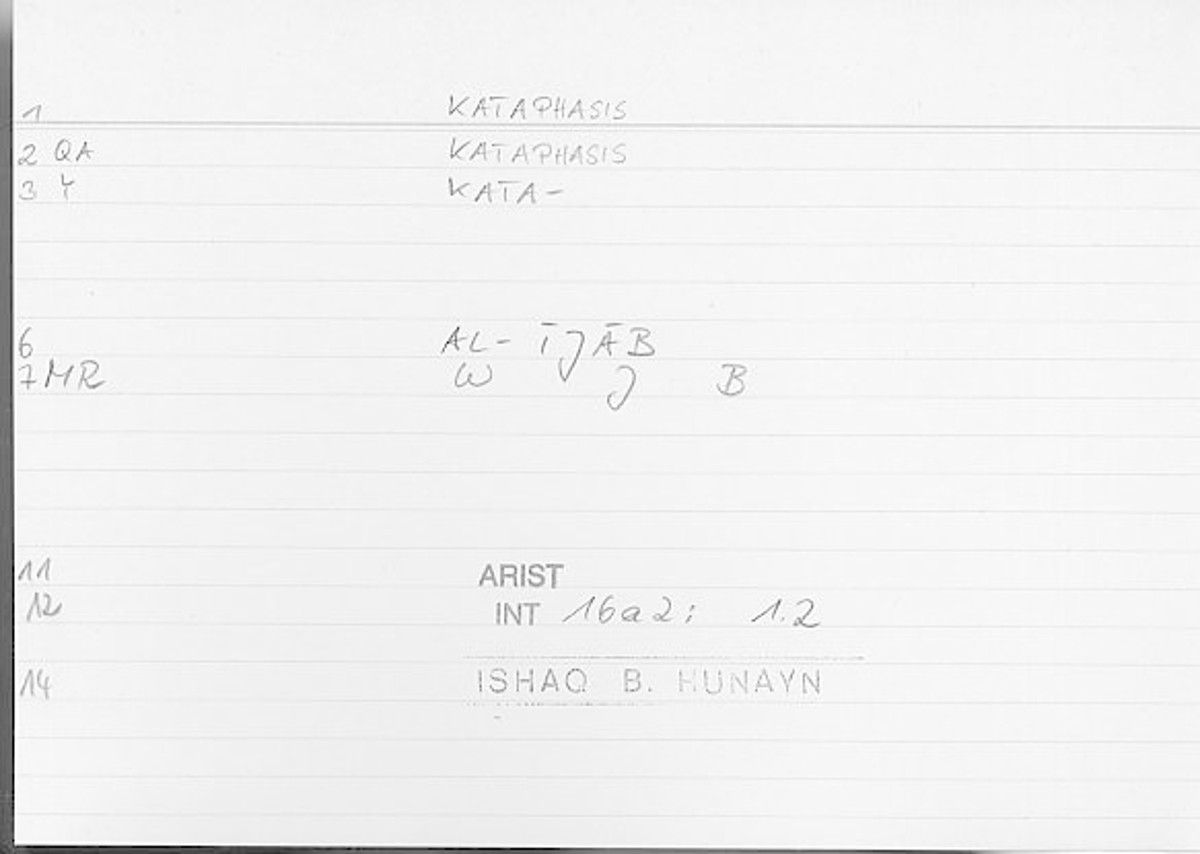 1 KATAPHASIS
2 QA KATAPHASIS
3 Y KATA-
6 AL-ĪJĀB
7 MR W J B
11 ARIST
12 INT 16a2; 1.2
14 ISHAQ B. HUNAYN